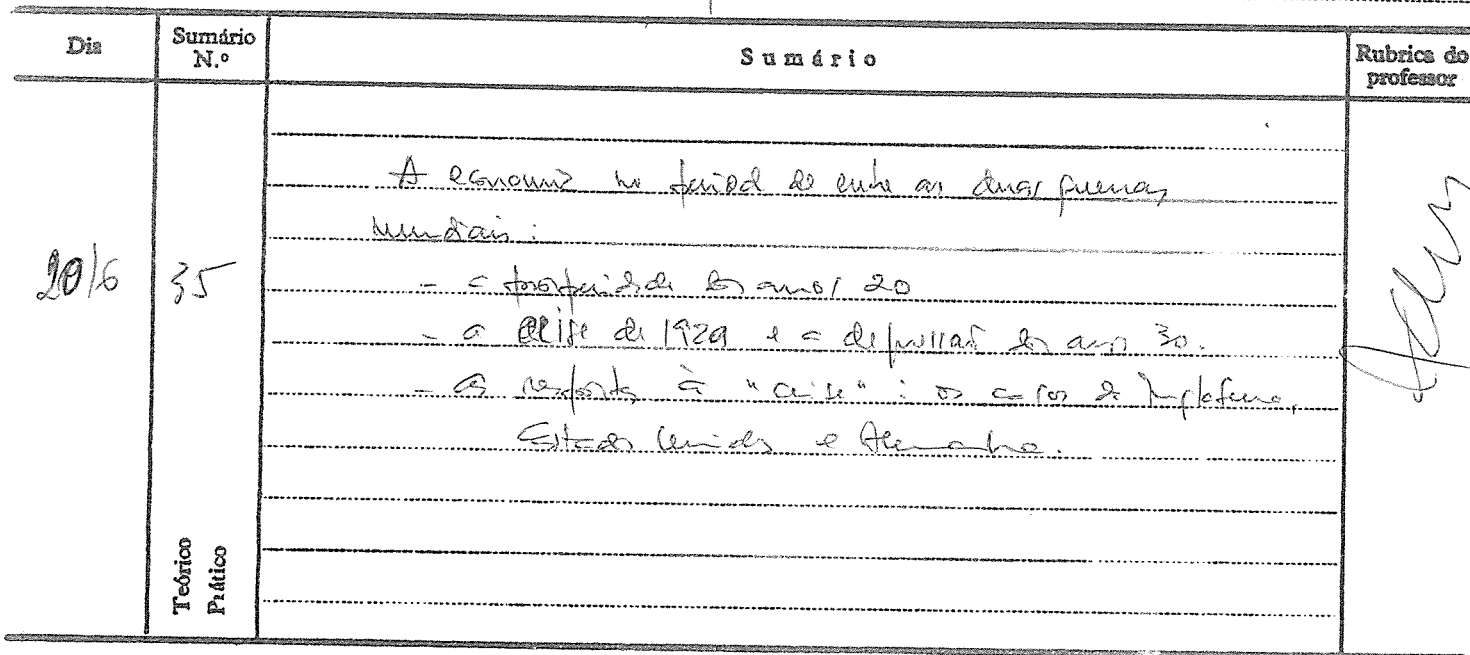 Dia
Sumário N.º
Sumário
Rubrica do professor
20/6
35
A economia no período de entre as duas guerras
mundiais:
- a prosperidade dos anos 20
- a crise de 1929 e a depressão dos anos 30.
- as respostas à "crise": os casos da Inglaterra,
Estados Unidos e Alemanha.
Teórico
Prático